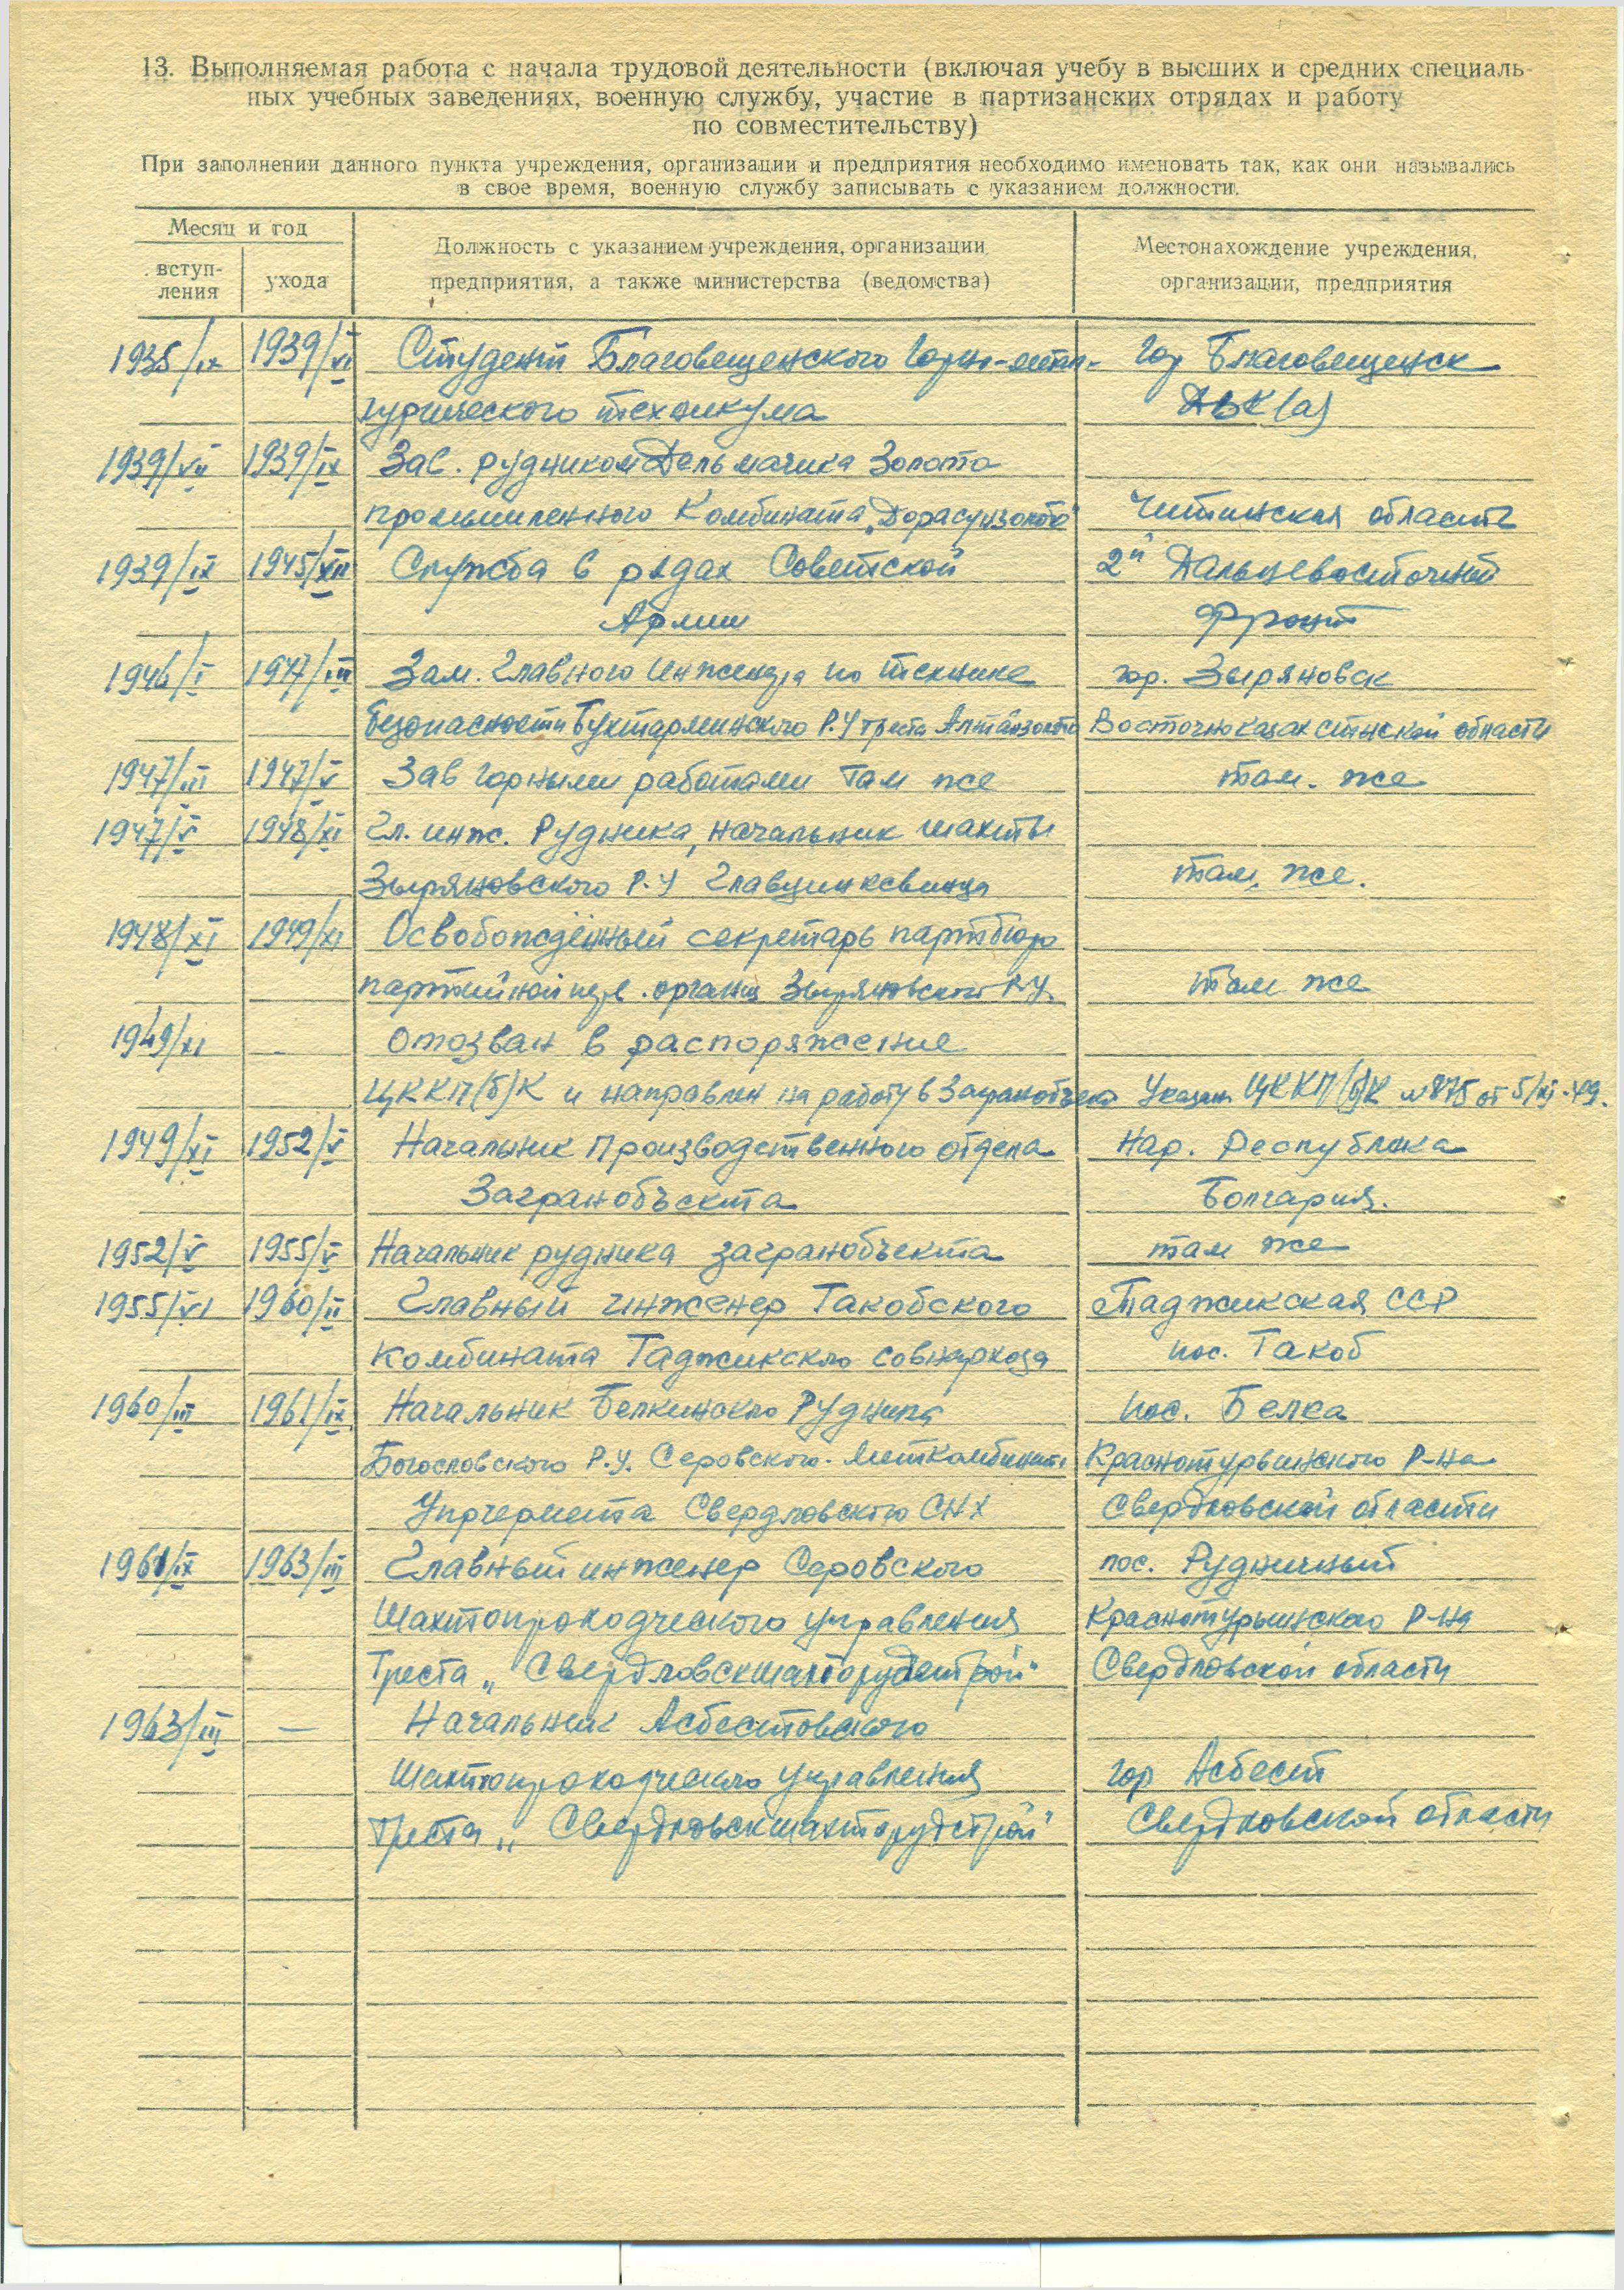 13. Выполняемая работа с начала трудовой деятельности (включая учебу в высших и средних специаль-
ных учебных заведениях, военную службу, участие в партизанских отрядах и работу
по совместительству)
При заполнении данного пункта учреждения, организации и предприятия необходимо именовать так, как они назывались
в свое время, военную службу записывать с указанием должности.
Месяц и год
вступ-
ления
ухода
Должность с указанием учреждения, организации,
предприятия, а также министерства (ведомства)
Местонахождение учреждения,
организации, предприятия
1935/IX 1939/VI Студент Благовещенского Горно-метал- гор Благовещенск
лургического техникума ДВК(а)
1939/VII 1939/IX Зав. рудником Дельмачика Золото
промышленного Комбината „Дорасунзолото" Читинская область
1939/IX 1945/XII Служба в рядах Советской 2й Дальневосточный
Армии Фронт
1946/I 1947/III Зам. Главного Инженера по технике гор. Зыряновск
безопасности Бухтарминского Р.У треста Алтайзолото Восточноказахстнской области
1947/III 1947/V Зав горными работами там же там. же
1947/V 1948/XI Гл. инж. Рудника, начальник шахты
Зыряновского Р.У Главцинксвинца там. же.
1948/XI 1949/XI Освобождённый секретарь партбюро
партийной перв. организ Зыряновского Р.У. там же
1949/XI – Отозван в распоряжение
ЦККП(б)К и направлен на работу в Загранобъект Указан. ЦККП(б)К №875 от 5/XI-49.
1949/XI 1952/V Начальник Производственного отдела Нар. Республика
Загранобъекта Болгария.
1952/V 1955/V Начальник рудника загранобъекта там же
1955/VI 1960/II Главный инженер Такобского Таджикская ССР
комбината Таджикскго совнархоза пос. Такоб
1960/III 1961/IX Начальник Белкинского Рудника пос. Белка
Богословского Р.У. Серовского. Меткомбината Краснотурьинского Р-на
Упрчермета Свердловского СНХ Свердловской области
1961/IX 1963/III Главный инженер Серовского пос. Рудничный
Шахтопроходческого управления Краснотурьинского Р-на
Треста „Свердловскшахторудстрой" Свердловской области
1963/III — Начальник Асбестовского
Шахтопроходческого управления гор Асбест
треста „Свердловскшахторудстрой" Свердловской области